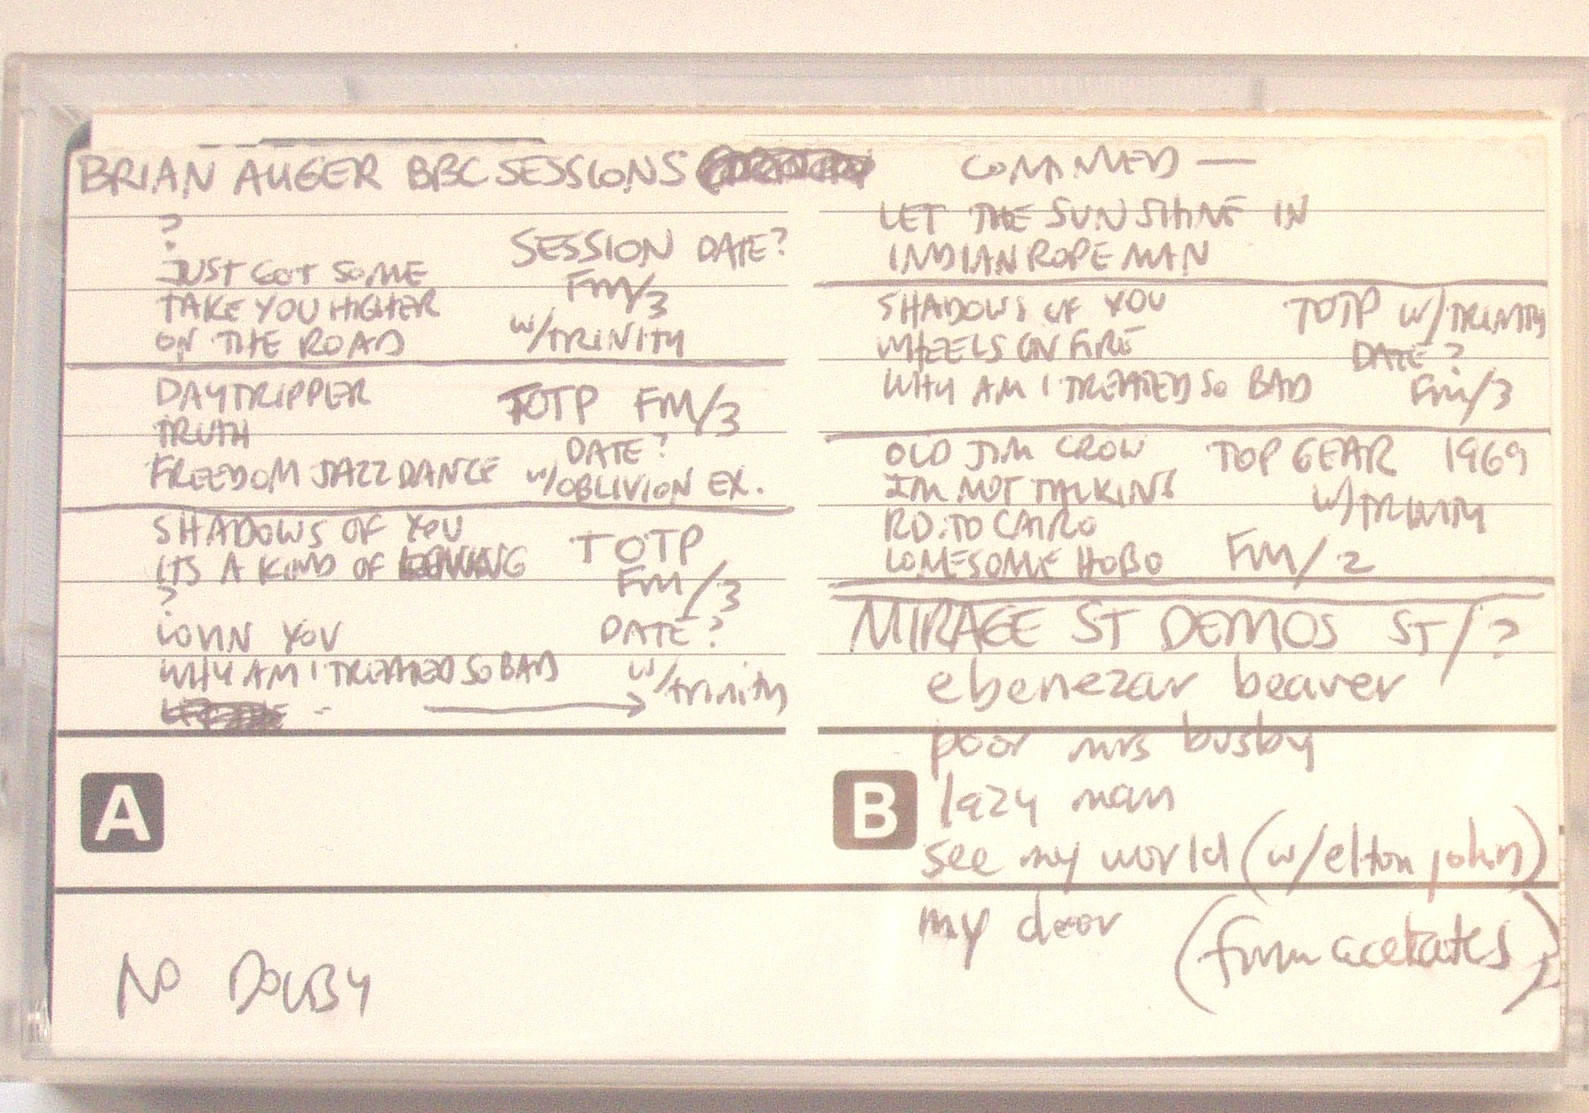 BRIAN AUGER BBC SESSIONS
?
JUST GOT SOME
TAKE YOU HIGHER
ON THE ROAD
SESSION DATE?
FM/3
w/TRINITY
DAYTRIPPER
TRUTH
FREEDOM JAZZ DANCE
TOTP FM/3
DATE?
w/OBLIVION EX.
SHADOWS OF YOU
ITS A KIND OF
?
LOVIN YOU
WHY AM I TREATED SO BAD
TOTP
FM/3
DATE?
w/trinity
A
NO DOLBY
CONTINUED —
LET THE SUNSHINE IN
INDIAN ROPE MAN
SHADOWS OF YOU
WHEELS ON FIRE
WHY AM I TREATED SO BAD
TOTP w/TRINITY
DATE?
FM/3
OLD JIM CROW
IM NOT TALKING
RD. TO CAIRO
LONESOME HOBO
TOP GEAR 1969
w/TRINITY
FM/2
MIRAGE ST DEMOS ST/?
ebenezar beaver
poor mrs busby
B
lazy man
see my world (w/elton john)
my door
(from acetates)